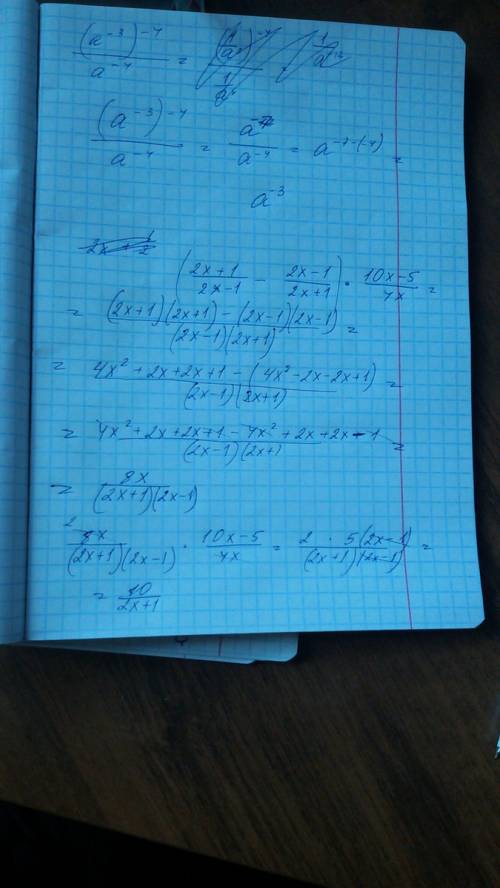 (a⁻³)⁻⁴ / a⁻⁴ =
(a⁻³)⁻⁴ / a⁻⁴ = a⁻⁷ / a⁻⁴ = a⁻⁷⁻⁽⁻⁴⁾ =
a⁻³
((2x+1)/(2x-1) - (2x-1)/(2x+1)) · (10x-5)/4x =
= ((2x+1)(2x+1) - (2x-1)(2x-1)) / ((2x-1)(2x+1)) =
= (4x² + 2x + 2x + 1 - (4x² - 2x - 2x + 1)) / ((2x-1)(2x+1)) =
= (4x² + 2x + 2x + 1 - 4x² + 2x + 2x - 1) / ((2x-1)(2x+1)) =
= 8x / ((2x+1)(2x-1))
8x / ((2x+1)(2x-1)) · (10x-5)/4x = (2 · 5(2x-1)) / ((2x+1)(2x-1)) =
= 10 / (2x+1)